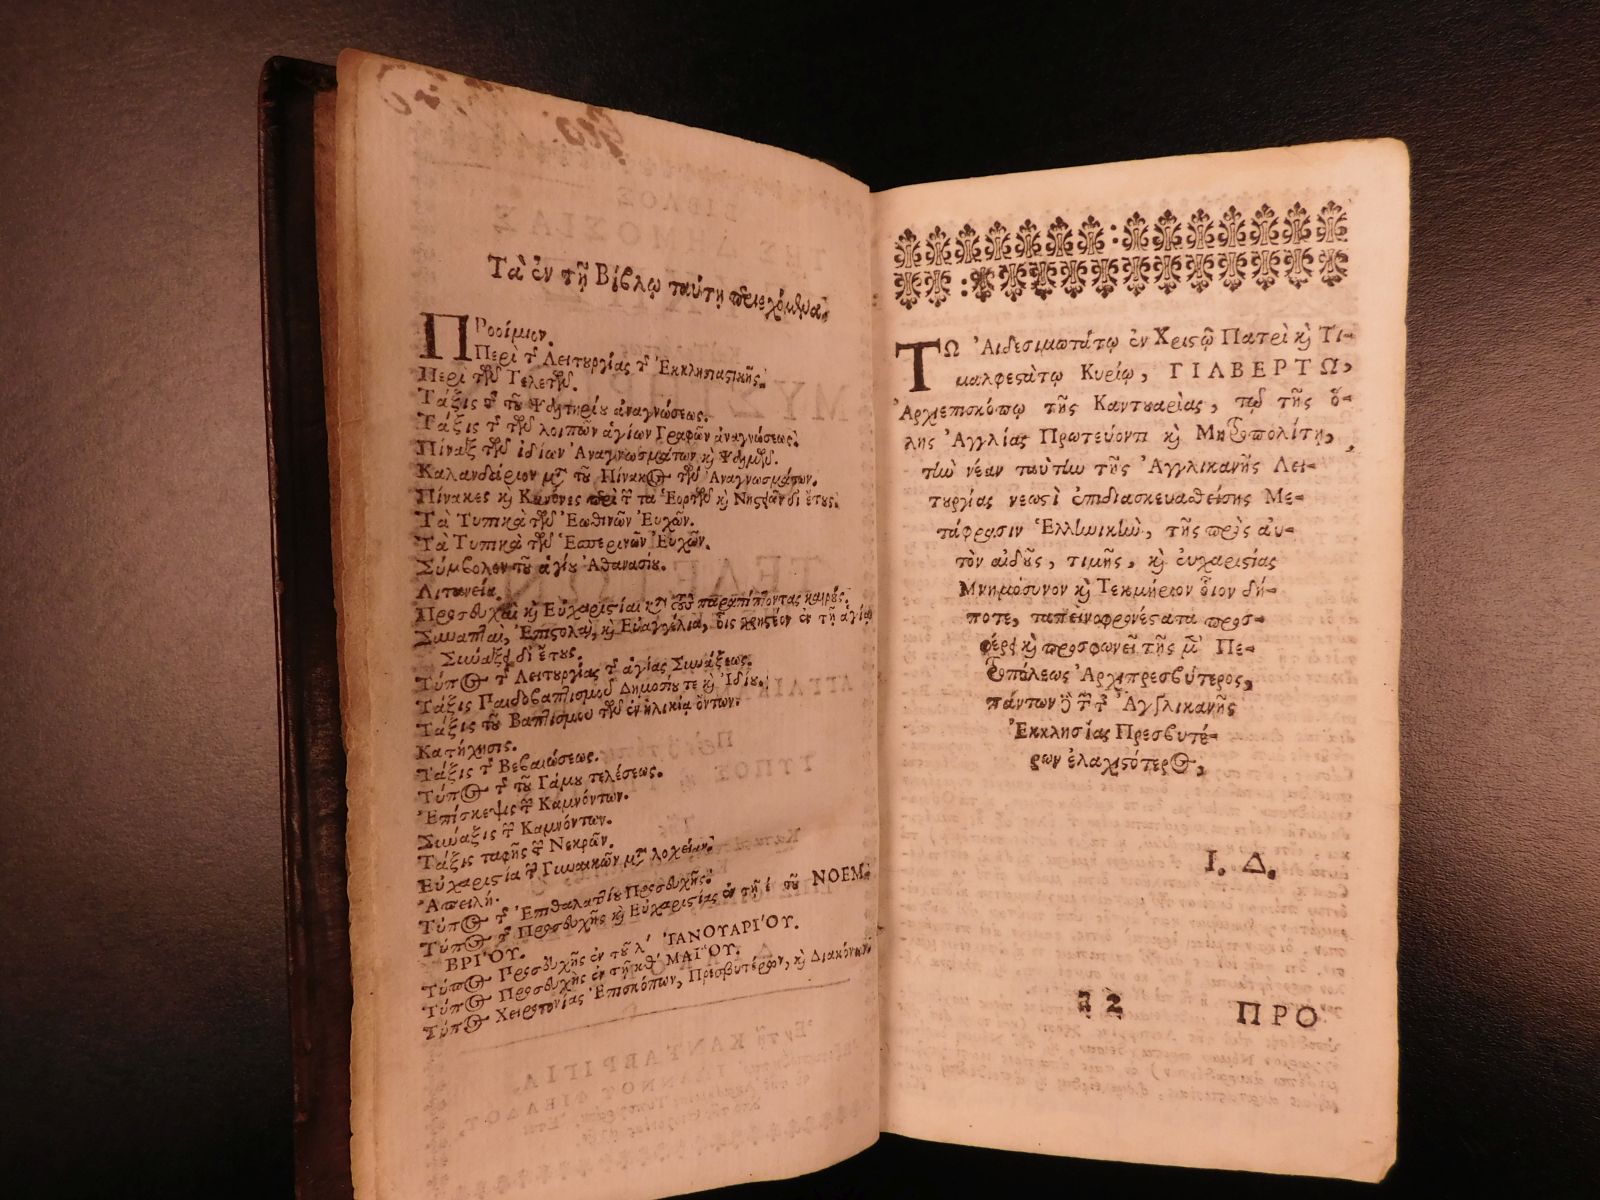 Τὰ ἐν τῇ Βίβλῳ ταύτῃ περιεχόμενα.
ΠΡοοίμιον.
Περὶ τ῀ Λειτουργίας τ῀ Ἐκκλησιαστικῆς.
Περὶ τῶν Τελετῶν.
Τάξις τ῀ τοῦ Ψαλτηρίου ἀναγνώσεως.
Τάξις τ῀ τῶν λοιπῶν ἁγίων Γραφῶν ἀναγνώσεως.
Πίναξ τῶν ἰδίων Ἀναγνωσμάτων κὶ Ψαλμῶν.
Καλανδάριον μετὰ τοῦ Πίνακος τῶν Ἀναγνωσμάτων.
Πίνακες κὶ Κανόνες περὶ Ἑορτῶν κὶ Νηστειῶν δι' ἔτους.
Τὰ Τυπικὰ τῶν Ἑωθινῶν Εὐχῶν.
Τὰ Τυπικὰ τῶν Ἑσπερινῶν Εὐχῶν.
Σύμβολον τοῦ ἁγίου Ἀθανασίου.
Λιτανεία.
Προσευχαὶ κὶ Εὐχαριστίαι κατὰ τοὺς παραπίπτοντας καιρούς.
Συναπταὶ, Ἐπιστολαὶ, κὶ Εὐαγγέλια, οἷς χρηστέον ἐν τῇ ἁγίᾳ
Συνάξει δι' ἔτους.
Τύπος τ῀ Λειτουργίας τ῀ ἁγίας Συνάξεως.
Τάξις Παιδοβαπτισμοῦ Δημοσίου τε κὶ Ἰδίου.
Τάξις τοῦ Βαπτισμοῦ τῶν ἐν ἡλικίᾳ ὄντων.
Κατήχησις.
Τάξις τ῀ Βεβαιώσεως.
Τύπος τ῀ τοῦ Γάμου τελέσεως.
Ἐπίσκεψις τ῀ Καμνόντων.
Σύναξις τ῀ Καμνόντων.
Τάξις ταφῆς τ῀ Νεκρῶν.
Εὐχαριστία τ῀ Γυναικῶν μετὰ λοχείαν.
Ἀπειλή.
Τύπος τ῀ Ἐπιθαλασσίου Προσευχῆς.
Τύπος τ῀ Προσευχῆς κὶ Εὐχαριστίας ἐν τῇ έ τοῦ ΝΟΕΜ-
ΒΡΙΌΥ.
Τύπος Προσευχῆς ἐν τοῦ λ' ἸΑΝΟΥΑΡΙΌΥ.
Τύπος Προσευχῆς ἐν τῇ κθ' ΜΑΪΌΥ.
Τύπος Χειροτονίας Ἐπισκόπων, Πρεσβυτέρων, κὶ Διακόνων.
ΤΩ Αἰδεσιμωτάτῳ ἐν Χριστῷ Πατρὶ κὶ Τι-
μαλφεστάτῳ Κυρίῳ, ΓΙΛΒΕΡΤΩ,
Ἀρχιεπισκόπῳ τῆς Καντουαρίας, τῷ τῆς ὅ-
λης Ἀγγλίας Πρωτεύοντι κὶ Μητροπολίτῃ,
τὴν νέαν ταύτην τῆς Ἀγγλικανῆς Λει-
τουργίας νεωστὶ ἐπιδιασκευασθείσης Με-
τάφρασιν Ἑλληνικὴν, τῆς πρὸς αὐ-
τὸν αἰδοῦς, τιμῆς, κὶ εὐχαριστίας
Μνημόσυνον κὶ Τεκμήριον οἷον δή-
ποτε, ταπεινοφρονέστατα προσ-
φέρει κὶ προσφωνεῖ τῆς Πε-
τροπόλεως Ἀρχιπρεσβύτερος,
πάντων Ἀγγλικανῆς
Ἐκκλησίας Πρεσβυτέ-
ρων ἐλαχιστότερος,
Ι. Δ.
a 2
ΠΡΟ